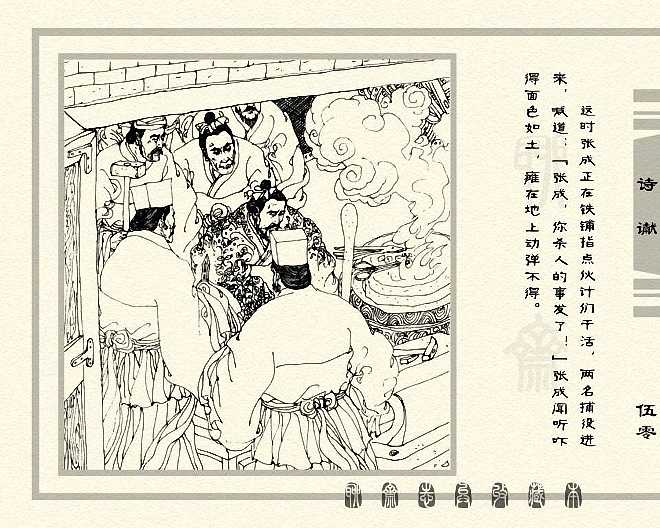 这时张成正在铁铺指点伙计们干活，两名捕役进
来，喊道：「张成，你杀人的事发了！」张成闻听吓
得面色如土，瘫在地上动弹不得。
诗谳
伍零
聊斋志异
藏本